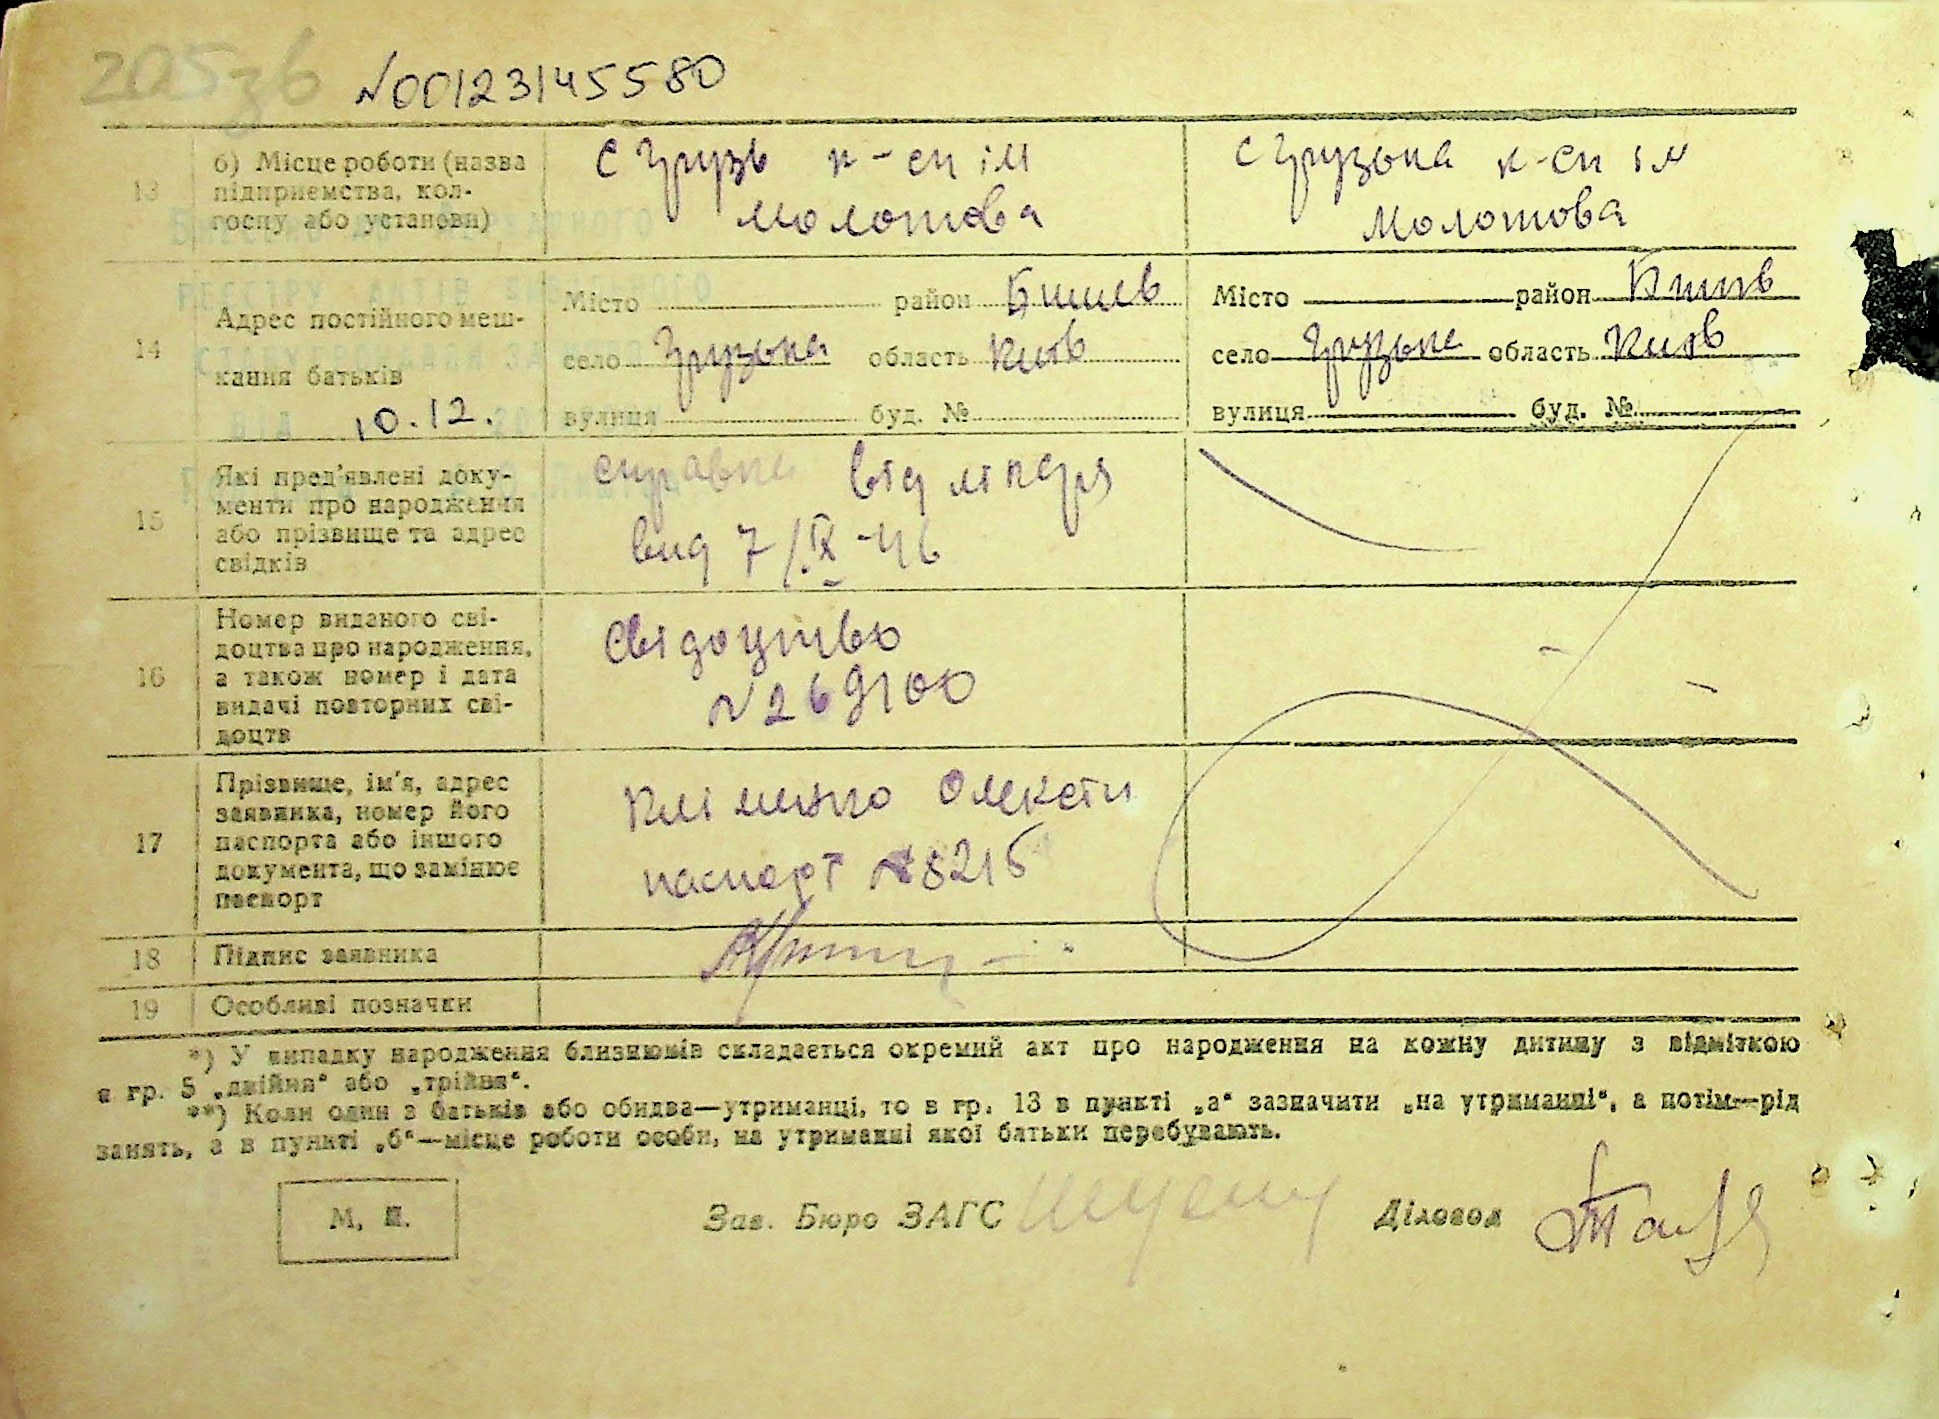 205зв №00123145580
13 б) Місце роботи (назва підприємства, кол-
госпу або установи)
с Грузь к-сп ім
Молотова
с Грузька к-сп ім
Молотова
14 Адрес постійного меш-
кання батьків
10.12.
Місто район Бишев
село Грузька область Київ
вулиця буд. №
Місто район Бишів
село Грузька область Київ
вулиця буд. №
15 Які пред'явлені доку-
менти про народження
або прізвище та адрес
свідків
справка від лікаря
від 7/IX-46
16 Номер виданого сві-
доцтва про народження,
а також номер і дата
видачі повторних сві-
доцтв
Свідоцтво
№269100
17 Прізвище, ім'я, адрес
заявника, номер його
паспорта або іншого
документа, що замінює
паспорт
Кліменко
паспорт №8215
18 Підпис заявника
19 Особливі позначки
*) У випадку народження близнюків складається окремий акт про народження на кожну дитину з відміткою
в гр. 5 „двійня" або „трійня".
**) Коли один з батьків або обидва—утриманці, то в гр. 13 в пункті „а" зазначити „на утриманні", а потім—рід
занять, а в пункті „б"—місце роботи особи, на утриманні якої батьки перебувають.
М. П.
Зав. Бюро ЗАГС
Діловод